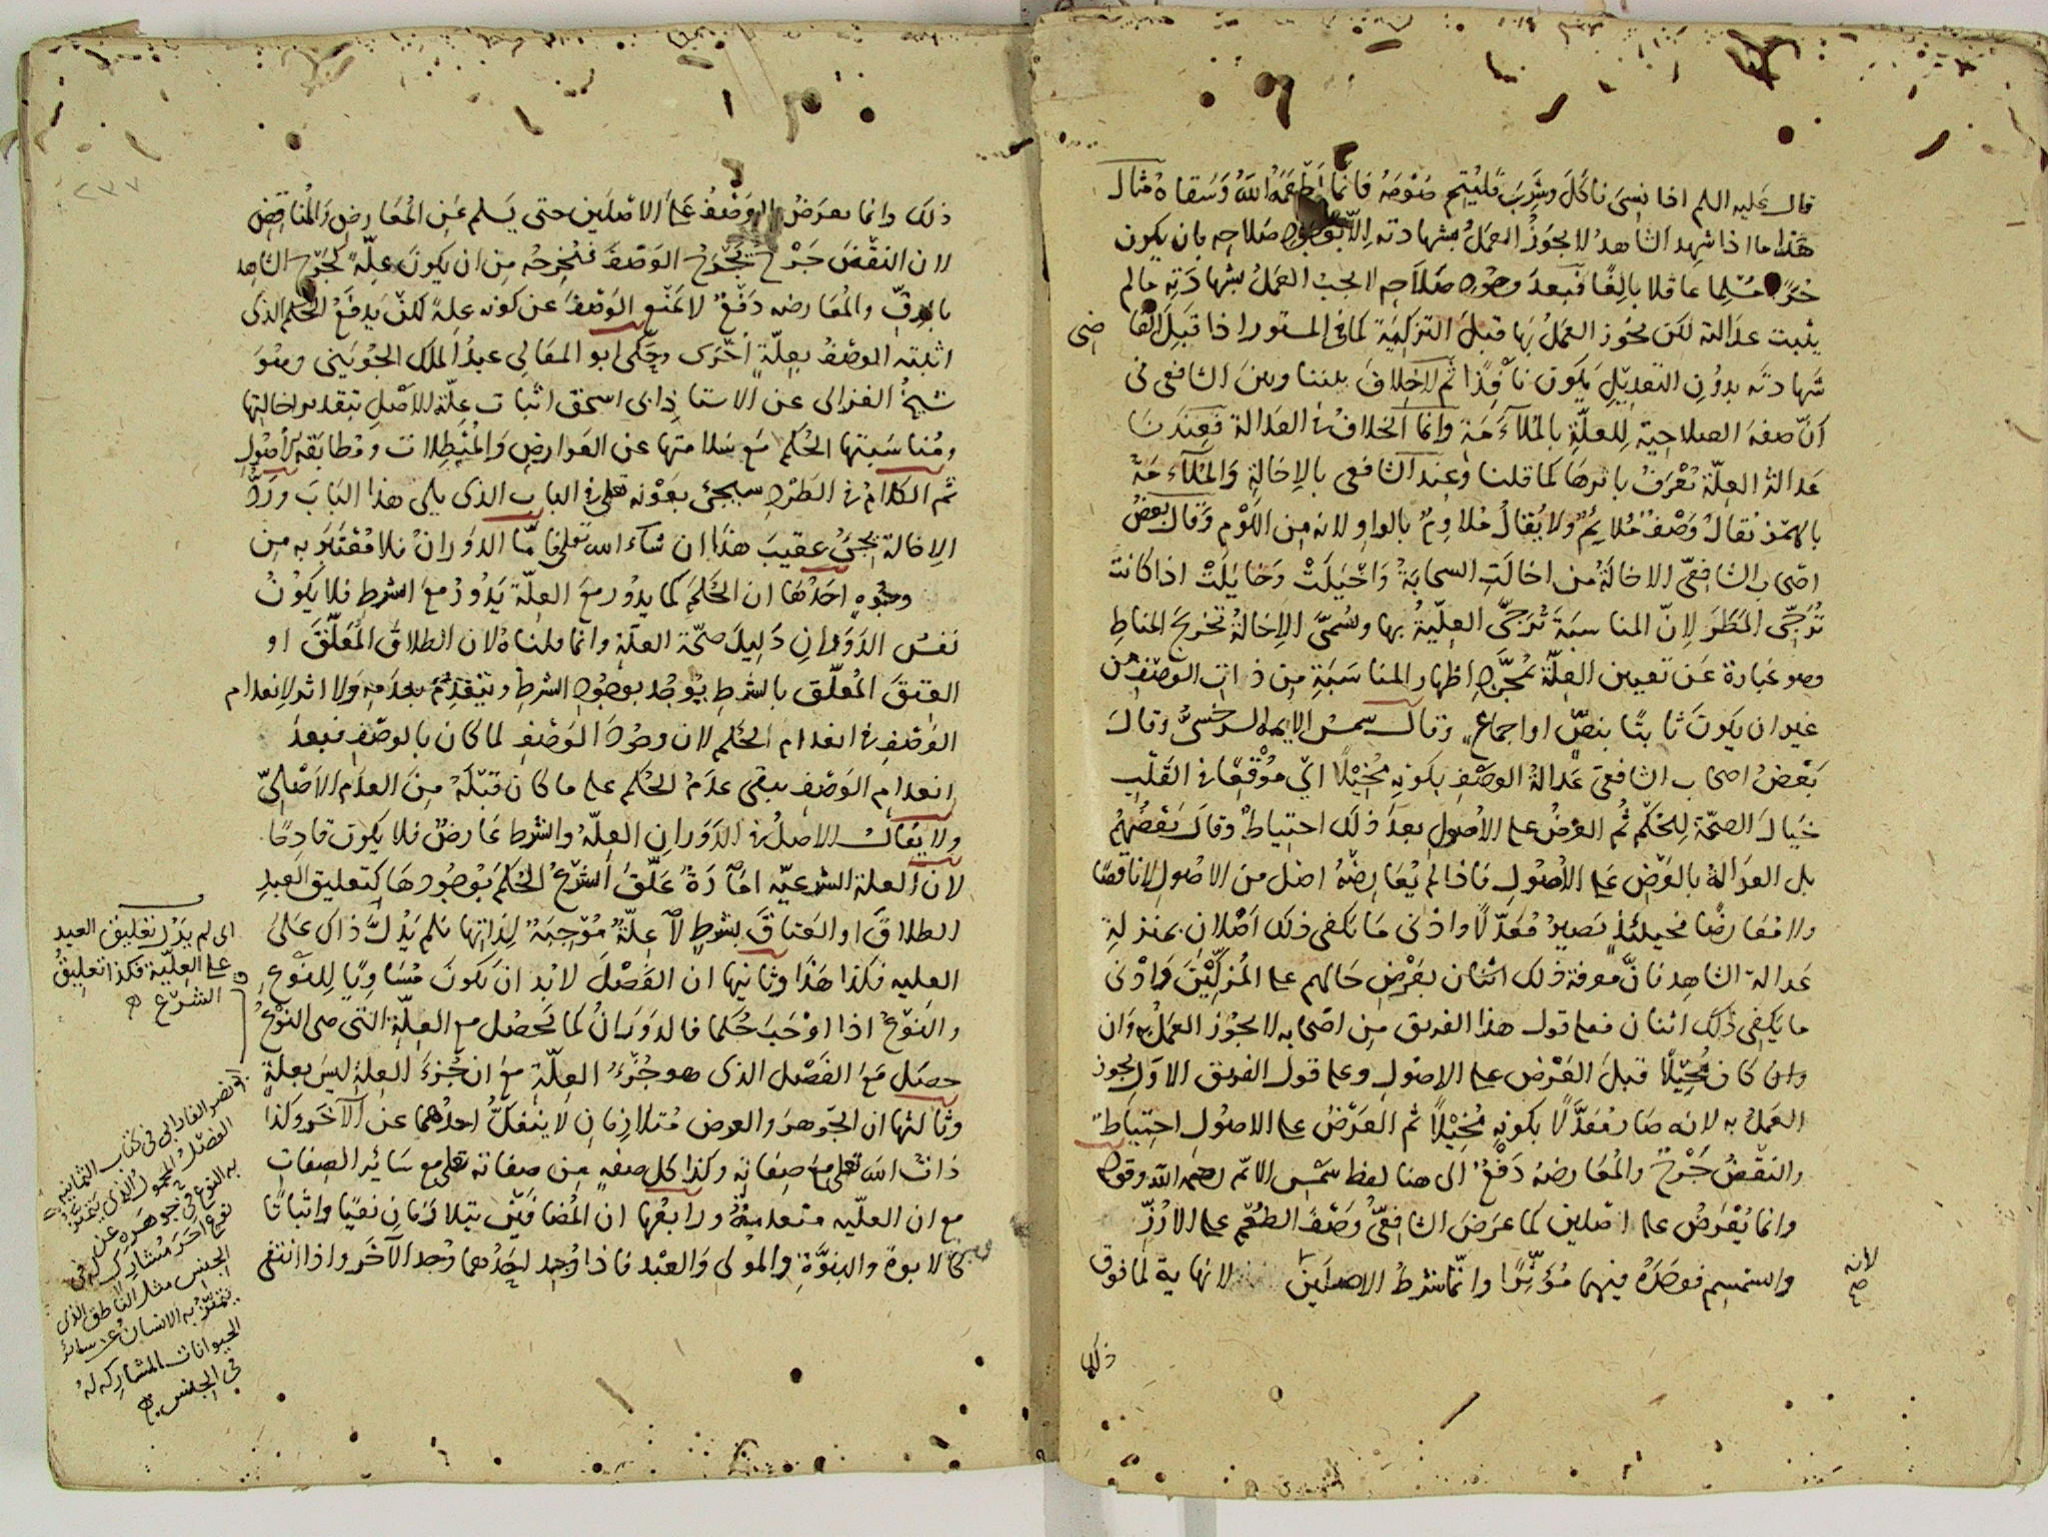 قال عليه السلم اذا نسي فاكل وشرب فليتم صومه فانما اطعمه الله وسقاه مثال
هذا ما اذا شهد الشاهد لا يجوز العمل بشهادته الا بوجود صلاحه بان يكون
حرا مسلما عاقلا بالغا فبعد وجود صلاحه لا يجب العمل بشهادته مالم
يثبت عدالته لكن يجوز العمل بها قبل التزكية كما في المستور اذا قبل القا
ضي
شهادته بدون التعديل يكون نافذا ثم لا خلاف بيننا وبين الشافعي في
ان صفة الصلاحية للعلة بالملاءمة وانما الخلاف في العدالة فعندنا
عدالة العلة تعرف باثرها كما قلنا وعند الشافعي بالاخالة والملاءمة
بالهمز يقال وصف ملائم ولا يقال ملاوم بالواو لانه من اللوم وقال بعض
اصحاب الشافعي الاخالة من اخالت السحابة واخيلت وخايلت اذا كانت
ترجى المطر لان المناسبة ترجى العلية بها وسمى الاخالة تخريج المناط
وهو عبارة عن تعيين العلة بمجرد اظهار المناسبة من ذات الوصف من
غير ان يكون ثابتا بنص او اجماع وقال شمس الايمة السرخسي وقال
بعض اصحاب الشافعي عدالة الوصف بكونه مخيلا اي موقعا في القلب
خيال الصحة للحكم ثم العرض على الاصول بعد ذلك احتياط وقال بعضهم
بل العدالة بالعرض على الاصول فاذا لم يعارضه اصل من الاصول لا ناقضا
ولا معارضا فحينئذ تصير معدلا وادنى ما يكفي ذلك اصلان بمنزلة
عدالة الشاهد فان معرفة ذلك اثنان بعرض حالهم على المزكين وادنى
ما يكفي ذلك اثنان فعلى قول هذا الفريق من اصحابه لا يجوز العمل به وان
وان كان مخيلا قبل العرض على الاصول وعلى قول الفريق الاول يجوز
العمل به لانه صار معدلا بكونه مخيلا ثم العرض على الاصول احتياط
والنقض جرح والمعارضة دفع الى هنا لفظ شمس الائمة رحمه الله وقوله
وانما يعرض على اصلين كما عرض الشافعي وصف الطعم على الارز
والسمسم فوجده فيهما مؤثرا وانما شرط الاصلين لا نهاية لما فوق
لانه
صح
ذلك
ذلك وانما يعرض الوصف على الاصلين حتى يسلم عن المعارض والمناقض
لان النقض جرح يجرح الوصف فيخرجه من ان يكون علة كجرح الشاهد
بالرق والمعارضة دفع لا تمنع الوصف عن كونه علة لكن يدفع الحكم الذي
اثبته الوصف بعلة اخرى وحكى ابو المعالي عبد الملك الجويني وهو
شيخ الغزالي عن الاستاذ ابي اسحق اثبات علة الاصل بتقدير اخالتها
ومناسبتها الحكم مع سلامتها عن العوارض والمبطلات ومطابقة الاصول
ثم الكلام في الطرد سيجئ بعونه تعلى في الباب الذي يلي هذا الباب ورد
الاخالة يجئ عقيب هذا ان شاء الله تعلى فاما الدوران فلا معتبر به من
وجوه احدها ان الحكم كما يدور مع العلة يدور مع الشرط فلا يكون
نفس الدوران دليل صحة العلة وانما قلنا لان الطلاق المعلق او
العتق المعلق بالشرط يوجد بوجود الشرط وينعدم بعدمه ولا اثر لانعدام
الوصف في انعدام الحكم لان وجود الوصف لما كان بالوصف فبعد
انعدام الوصف يبقى عدم الحكم على ما كان قبله من العدم الاصلي
ولا يقال الاصل في الدوران العلة والشرط عارض فلا يكون قادحا
لان العلة الشرعية امارة علق الشرع الحكم بوجودها كتعليق العبد
الطلاق او العتاق بشرط لا علة موجبة لذاتها فلم يدل ذاك على
العليه فكذا هذا وثانيها ان الفصل لابد ان يكون مساويا للنوع
والنوع اذا اوجب حكما فالدوران كما يحصل مع العلة التي هي النوع
حصل مع الفصل الذي هو جزء العلة مع ان جزء العلة ليس بعلة
وثالثها ان الجوهر والعرض متلازمان لا ينفك احدهما عن الآخر وكذا
ذات الله تعلى مع صفاته وكذا كل صفة من صفاته تعلى مع سائر الصفات
مع ان العلية منعدمة ورابعها ان المضافين يتلازمان نفيا واثباتا
كالابوة والبنوة والمولى والعبد فاذا وجد احدهما وجد الآخر واذا انتفى
اى لم يدل تعليق العبد
على العلية فكذا تعليق
الشرع
ابو نصر الفارابي في كتاب الثمانية
الفصل المحمول الذي يتميز
به النوع في جوهره عن
نوع آخر مشارك له في
الجنس مثل الناطق الذي
يتميز به الانسان عن سائر
الحيوانات المشاركة له
في الجنس